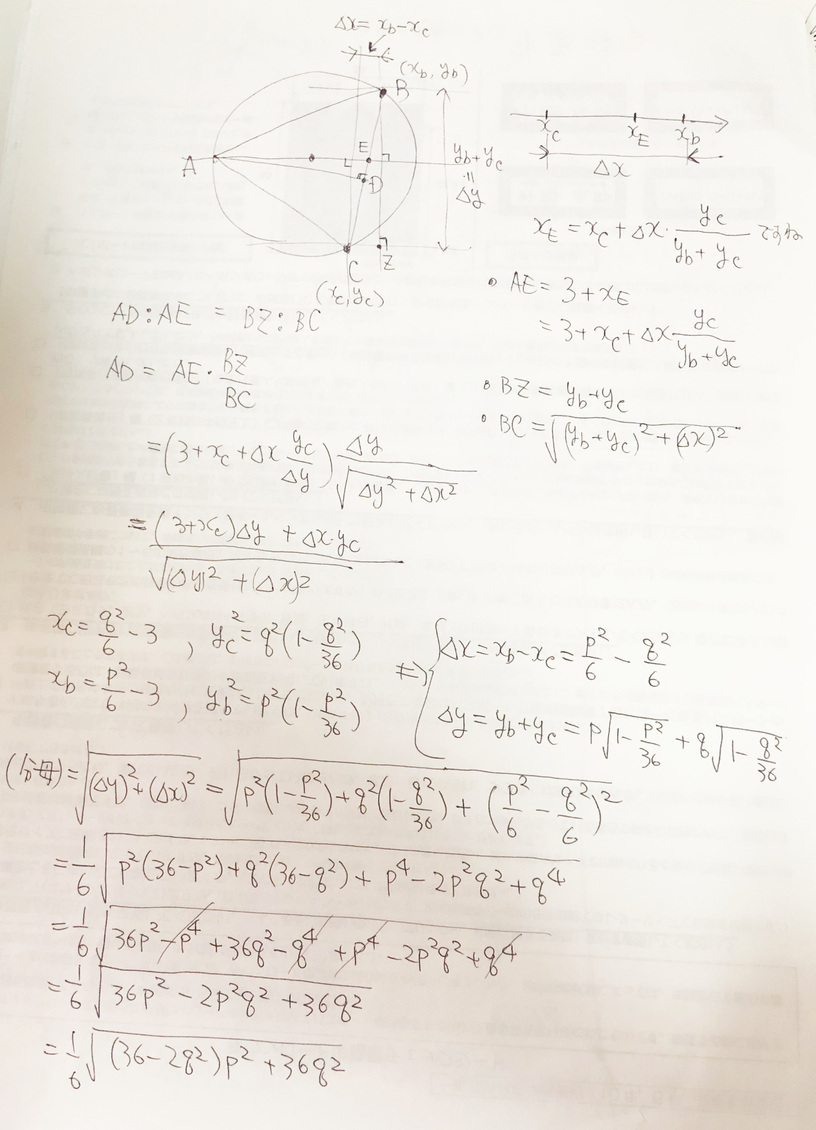 Δx = x_b - x_c
(x_b, y_b)
B
A
E
D
y_b + y_c
=
Δy
C
Z
(x_c, y_c)
x_C x_E x_b
Δx
x_E = x_C + Δx · y_c / (y_b + y_c) ですね
・ AE = 3 + x_E
= 3 + x_C + Δx y_c / (y_b + y_c)
・ BZ = y_b + y_c
・ BC = √((y_b + y_c)² + (Δx)²)
AD : AE = BZ : BC
AD = AE · BZ / BC
= (3 + x_c + Δx y_c / Δy) Δy / √(Δy² + Δx²)
= ((3 + x_c)Δy + Δx · y_c) / √((Δy)² + (Δx)²)
x_c = q²/6 - 3 , y_c² = q²(1 - q²/36)
x_b = p²/6 - 3 , y_b² = p²(1 - p²/36)
⇒ { Δx = x_b - x_c = p²/6 - q²/6
Δy = y_b + y_c = p√(1 - p²/36) + q√(1 - q²/36)
(分母) = √((Δy)² + (Δx)²) = √(p²(1 - p²/36) + q²(1 - q²/36) + (p²/6 - q²/6)²)
= 1/6 √(p²(36 - p²) + q²(36 - q²) + p⁴ - 2p²q² + q⁴)
= 1/6 √(36p² - p⁴ + 36q² - q⁴ + p⁴ - 2p²q² + q⁴)
= 1/6 √(36p² - 2p²q² + 36q²)
= 1/6 √((36 - 2q²)p² + 36q²)